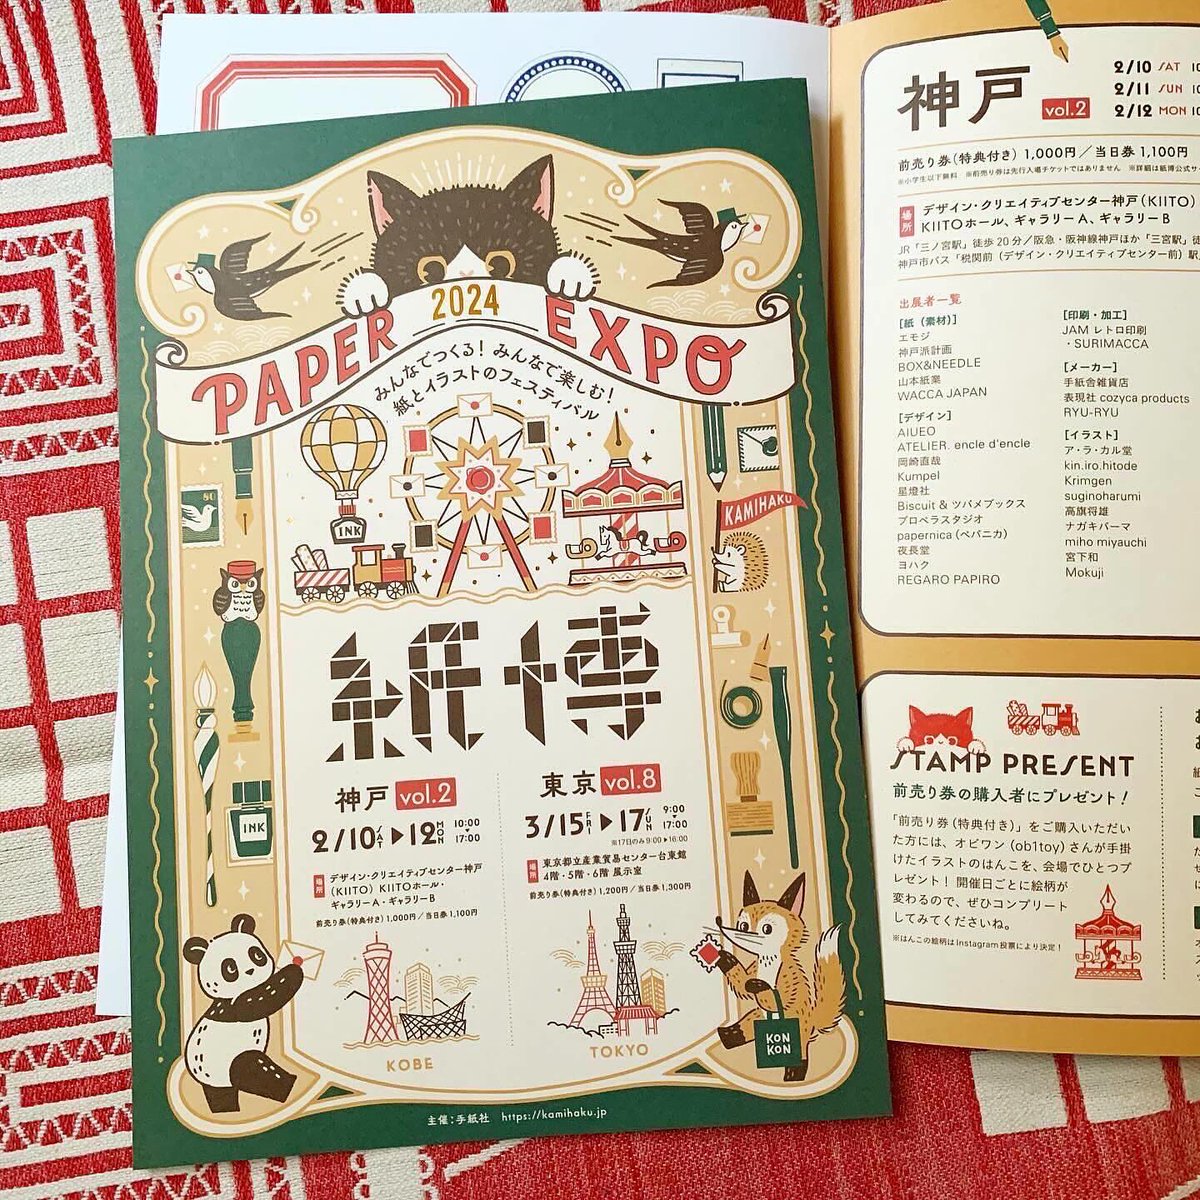 2024
PAPER EXPO
みんなでつくる！みんなで楽しむ！
紙とイラストのフェスティバル
INK
80
KAMIHAKU
INK
紙博
神戸 vol.2
2/10 SAT ▶ 12 MON 10:00 17:00
場所 デザイン・クリエイティブセンター神戸
(KIITO) KIITOホール・
ギャラリーA・ギャラリーB
前売り券(特典付き) 1,000円／当日券 1,100円
KOBE
東京 vol.8
3/15 FRI ▶ 17 SUN 9:00 17:00
※17日のみ9:00▶16:00
場所 東京都立産業貿易センター台東館
4階・5階・6階 展示室
前売り券(特典付き) 1,200円／当日券 1,300円
TOKYO
KON
KON
主催：手紙社 https://kamihaku.jp
神戸 vol.2
2/10 SAT 10
2/11 SUN 10
2/12 MON 10
前売り券(特典付き) 1,000円／当日券 1,100円
※小学生以下無料 ※前売り券は先行入場チケットではありません ※詳細は紙博公式サ
場所 デザイン・クリエイティブセンター神戸(KIITO)
KIITOホール、ギャラリーA、ギャラリーB
JR「三ノ宮駅」徒歩20分／阪急・阪神線神戸ほか「三宮駅」徒
神戸市バス「税関前(デザイン・クリエイティブセンター前)駅」
出展者一覧
[紙(素材)]
エモジ
神戸派計画
BOX&NEEDLE
山本紙業
WACCA JAPAN
[デザイン]
AIUEO
ATELIER. encle d'encle
岡崎直哉
Kumpel
星燈社
Biscuit & ツバメブックス
プロペラスタジオ
papernica(ペパニカ)
夜長堂
ヨハク
REGARO PAPIRO
[印刷・加工]
JAM レトロ印刷
・SURIMACCA
[メーカー]
手紙舎雑貨店
表現社 cozyca products
RYU-RYU
[イラスト]
ア・ラ・カル堂
kin.iro.hitode
Krimgen
suginoharumi
高旗将雄
ナガキパーマ
miho miyauchi
宮下和
Mokuji
STAMP PRESENT
前売り券の購入者にプレゼント！
「前売り券(特典付き)」をご購入いただい
た方には、オビワン(ob1toy)さんが手掛
けたイラストのはんこを、会場でひとつプ
レゼント！ 開催日ごとに絵柄が
変わるので、ぜひコンプリート
してみてくださいね。
※はんこの絵柄はInstagram投票により決定！